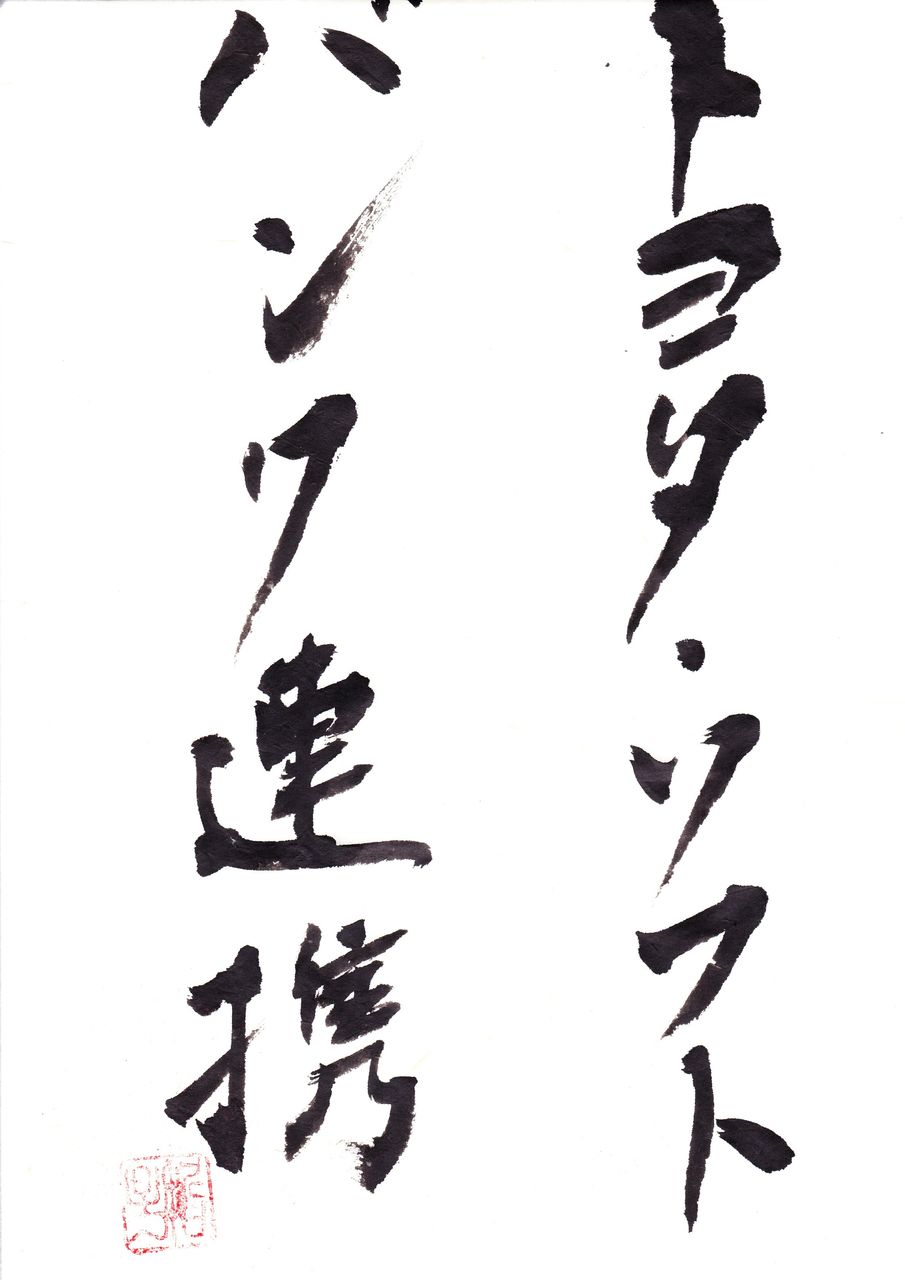 トヨタ・ソフト
バンク連携